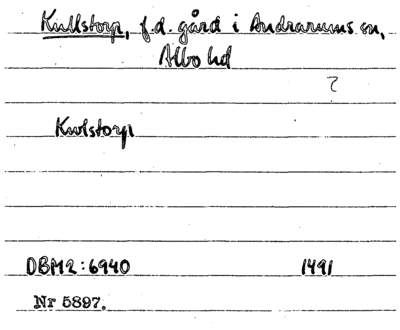 Kullstorp, f.d. gård i Andrarums sn,
Albo hd
?
Kulstorp
DBM2:6940 1491
Nr 5897.